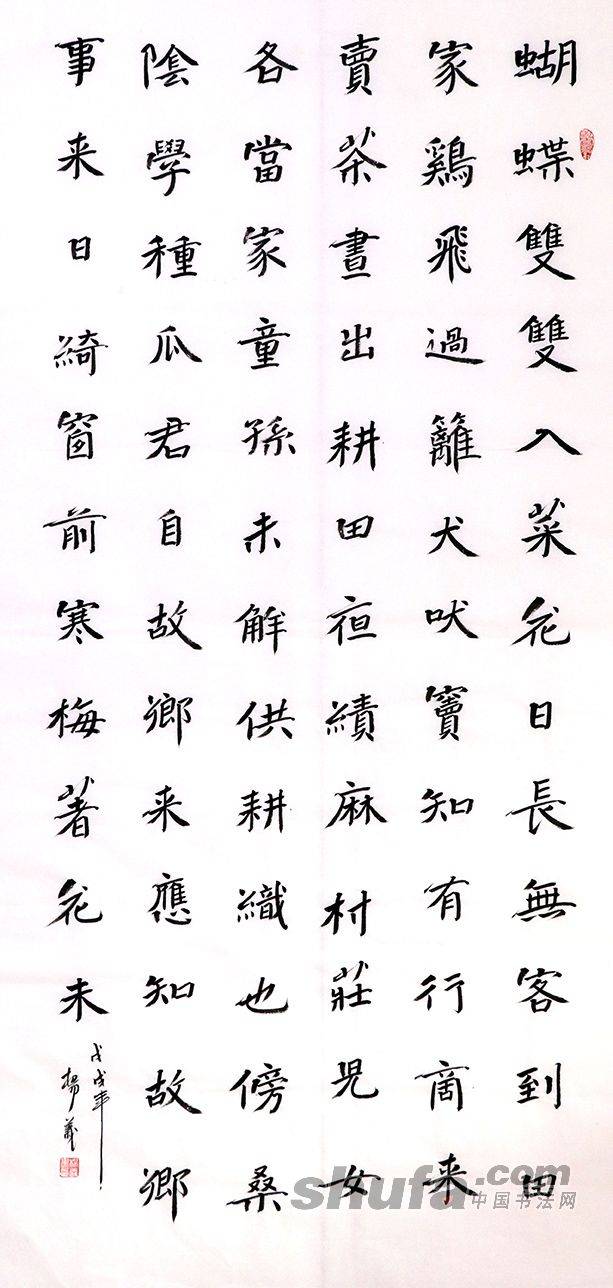 蝴蝶雙雙入菜花日長無客到田
家鷄飛過籬犬吠竇知有行商来
賣茶晝出耕田夜績麻村莊児女
各當家童孫未觧供耕織也傍桑
陰學種瓜君自故鄉来應知故鄉
事来日綺窗前寒梅著花未
戊戌年
楊
shufa.com
中国书法网